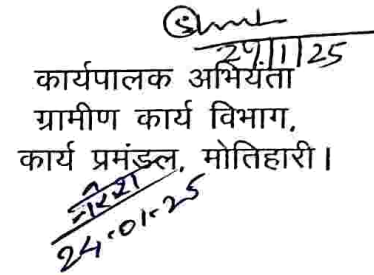 24/1/25
कार्यपालक अभियंता
ग्रामीण कार्य विभाग,
कार्य प्रमंडल, मोतिहारी।
24.01.25